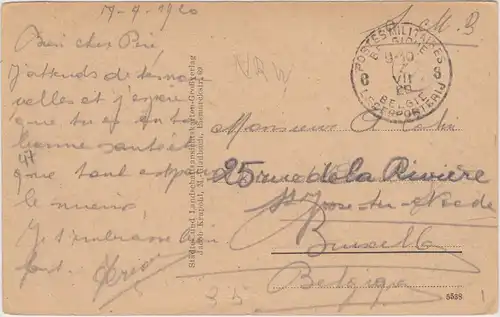 17-4-1920
S. M. B
Bien cher Père,
J'attends de tes nou
velles et j'espère
que tu es en
bonne santé
que tout est pour
le mieux
Je t'embrasse bien
fort.
NRW
POSTES MILITAIRES
BELGIQUE
VII
20
BELGIË
LEGERPOSTERIJ
Monsieur
25 rue de la Rivière
St Josse-ten-Noode
Bruxelles
Belgique
Städte- und Landschaftsansichtskarten-Großverlag
Jacob Krapohl, M. Gladbach, Bismarckstr. 60
35
5598